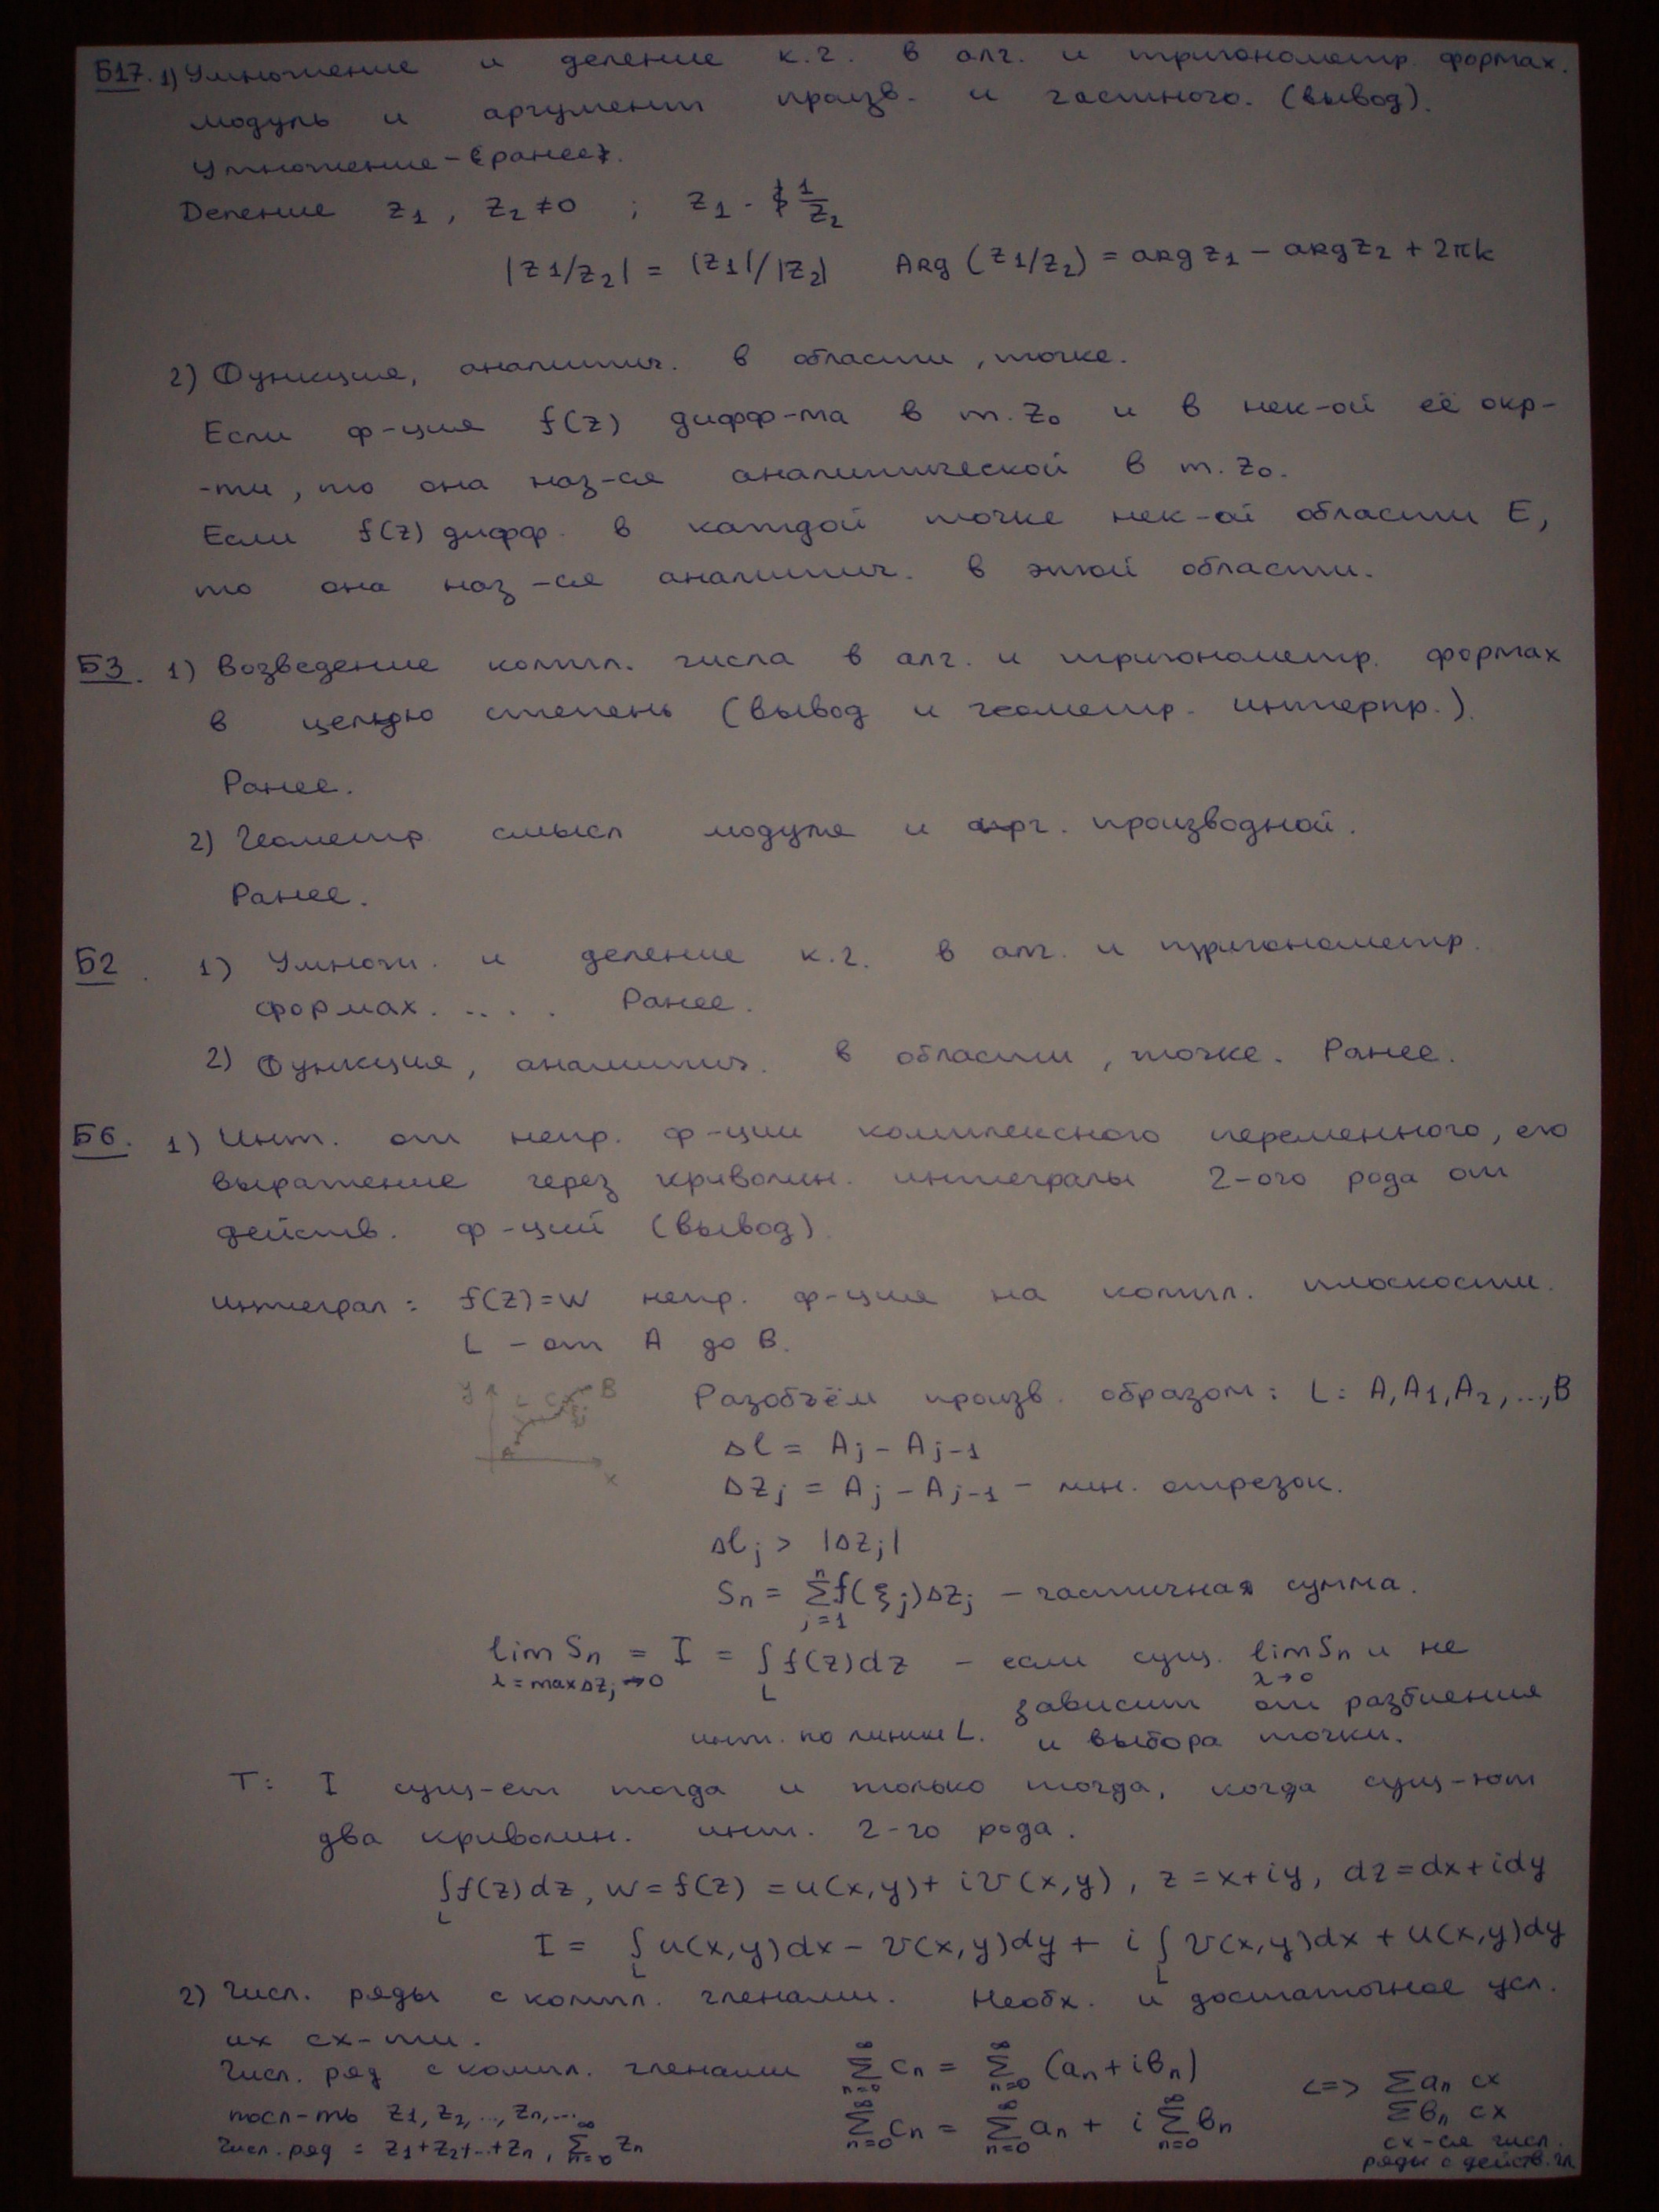 Б17. 1) Умножение и деление к.ч. в алг. и тригонометр. формах.
модуль и аргумент произв. и частного. (вывод).
Умножение - {ранее}.
Деление z₁, z₂ ≠ 0 ; z₁ · 1/z₂
|z₁/z₂| = |z₁|/|z₂| Arg (z₁/z₂) = arg z₁ - arg z₂ + 2πk
2) Функция, аналитич. в области, точке.
Если ф-ция f(z) дифф-ма в т. z₀ и в нек-ой её окр-
-ти, то она наз-ся аналитической в т. z₀.
Если f(z) дифф. в каждой точке нек-ой области E,
то она наз-ся аналитич. в этой области.
Б3. 1) Возведение компл. числа в алг. и тригонометр. формах
в целую степень (вывод и геометр. интерпр.).
Ранее.
2) Геометр. смысл модуля и арг. производной.
Ранее.
Б2. 1) Умнож. и деление к.ч. в алг. и тригонометр.
формах. ... . Ранее.
2) Функция, аналитич. в области, точке. Ранее.
Б6. 1) Инт. от непр. ф-ции комплексного переменного, его
выражение через криволин. интегралы 2-ого рода от
действ. ф-ций (вывод)
интеграл: f(z)=w непр. ф-ция на компл. плоскости.
L - от A до B.
y L C B
A x
Разобьём произв. образом: L: A, A₁, A₂, ..., B
Δl = Aⱼ - Aⱼ₋₁
Δzⱼ = Aⱼ - Aⱼ₋₁ - лин. отрезок.
Δlⱼ > |Δzⱼ|
Sₙ = ∑ⱼ₌₁ⁿ f(ξⱼ)Δzⱼ - частичная сумма.
lim Sₙ = I = ∫ f(z)dz - если сущ. lim Sₙ и не
λ = max Δzⱼ → 0 L λ→0
зависит от разбиения
инт. по линии L. и выбора точки.
Т: I сущ-ет тогда и только тогда, когда сущ-ют
два криволин. инт. 2-го рода.
∫_L f(z)dz, w = f(z) = u(x,y) + iv(x,y), z = x+iy, dz = dx+idy
I = ∫_L u(x,y)dx - v(x,y)dy + i ∫_L v(x,y)dx + u(x,y)dy
2) Числ. ряды с компл. членами. Необх. и достаточное усл.
их сх-ти.
Числ. ряд с компл. членами ∑ₙ₌₀^∞ cₙ = ∑ₙ₌₀^∞ (aₙ + ibₙ)
посл-ть z₁, z₂, ..., zₙ, ...
Числ. ряд = z₁+z₂+...+zₙ, ∑ₙ₌₀^∞ zₙ
∑ₙ₌₀^∞ cₙ = ∑ₙ₌₀^∞ aₙ + i ∑ₙ₌₀^∞ bₙ
<=> ∑aₙ сх
∑bₙ сх
сх-ся числ.
ряды с действ. чл.